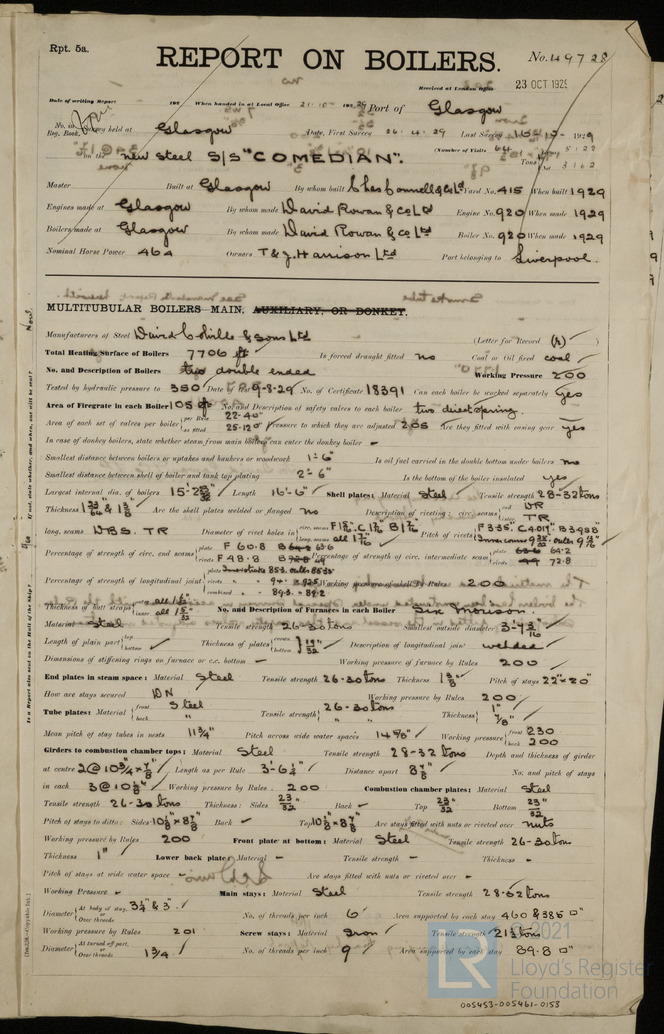 Rpt. 5a.
REPORT ON BOILERS.
No. 49728
Received at London Office
23 OCT 1929
Date of writing Report 192 When handed in at Local Office 21.10.1929 Port of Glasgow
No. in Survey held at Glasgow Date, First Survey 26.4.29 Last Survey 1929
Reg. Book. (Number of Visits 64)
on the new Steel S/S "COMEDIAN". Tons
Master Built at Glasgow By whom built Chas Connell & Co Ld Yard No. 415 When built 1929
Engines made at Glasgow By whom made David Rowan & Co Ltd Engine No. 920 When made 1929
Boilers made at Glasgow By whom made David Rowan & Co Ltd Boiler No. 920 When made 1929
Nominal Horse Power 464 Owners T & J. Harrison Ltd Port belonging to Liverpool.
MULTITUBULAR BOILERS MAIN, AUXILIARY, OR DONKEY.
Manufacturers of Steel David Colville & Sons Ltd (Letter for Record (S))
Total Heating Surface of Boilers 7706 ft Is forced draught fitted no Coal or Oil fired coal
No. and Description of Boilers two double ended Working Pressure 200
Tested by hydraulic pressure to 350 Date of test 9-8-29 No. of Certificate 18391 Can each boiler be worked separately Yes
Area of Firegrate in each Boiler 105 No. and Description of safety valves to each boiler two direct spring.
Area of each set of valves per boiler per Rule 22.40 as fitted 25.12 Pressure to which they are adjusted 205 Are they fitted with easing gear yes
In case of donkey boilers, state whether steam from main boilers can enter the donkey boiler -
Smallest distance between boilers or uptakes and bunkers or woodwork 1'-6" Is oil fuel carried in the double bottom under boilers no
Smallest distance between shell of boiler and tank top plating 2'-6" Is the bottom of the boiler insulated yes
Largest internal dia. of boilers 15'-2 Length 16'-6" Shell plates: Material Steel Tensile strength 28-32 tons
Thickness Are the shell plates welded or flanged no Description of riveting: circ. seams end DR
long. seams DBS. TR Diameter of rivet holes in circ. seams long. seams Pitch of rivets
Percentage of strength of circ. end seams plate F 60.8 rivets F 48.8 Percentage of strength of circ. intermediate seam plate 64.2 rivets 72.8
Percentage of strength of longitudinal joint plate rivets combined Working pressure of shell by Rules 200
Thickness of butt straps No. and Description of Furnaces in each Boiler Six Morison.
Material Steel Tensile strength 26-30 tons Smallest outside diameter
Length of plain part top bottom Thickness of plates crown bottom 19/32 Description of longitudinal joint welded
Dimensions of stiffening rings on furnace or c.c. bottom - Working pressure of furnace by Rules 200
End plates in steam space: Material Steel Tensile strength 26-30 tons Thickness Pitch of stays 22" x 20"
How are stays secured DN Working pressure by Rules 200
Tube plates: Material front Steel back " Tensile strength 26-30 tons " " Thickness 1" 7/8"
Mean pitch of stay tubes in nests 11 3/4" Pitch across wide water spaces 14 Working pressure front 230 back 200
Girders to combustion chamber tops: Material Steel Tensile strength 28-32 tons Depth and thickness of girder
at centre 2@10 3/4 x 7/8" Length as per Rule Distance apart 8 7/8" No. and pitch of stays
in each 3@10 1/8" Working pressure by Rules 200 Combustion chamber plates: Material Steel
Tensile strength 26-30 tons Thickness: Sides 23/32 Back - Top 23/32" Bottom 23/32"
Pitch of stays to ditto: Sides 10 1/8 x 8 7/8 Back - Top 10 1/8 x 8 7/8 Are stays fitted with nuts or riveted over nuts
Working pressure by Rules 200 Front plate at bottom: Material Steel Tensile strength 26-30 tons
Thickness 1" Lower back plate: Material - Tensile strength - Thickness -
Pitch of stays at wide water space - Are stays fitted with nuts or riveted over -
Working Pressure - Main stays: Material Steel Tensile strength 28-32 tons
Diameter At body of stay, or Over threads 3 1/4 & 3" No. of threads per inch 6 Area supported by each stay 460 & 385 □"
Working pressure by Rules 201 Screw stays: Material Iron Tensile strength 21 1/2 tons
Diameter At turned off part, or Over threads 1 3/4 No. of threads per inch 9 Area supported by each stay 89.8 □"
© 2021
LR
Lloyd's Register
Foundation
005453-005461-0153